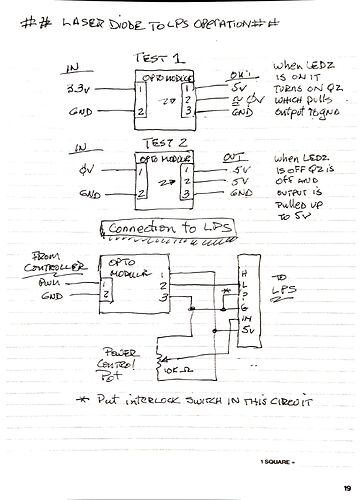 ## LASER DIODE TO LPS OPERATION ##
TEST 1
IN
OPTO MODULE
OUT
3.3V
1
2
1
2
3
5V
≈ ØV
GND
GND
WHEN LED2
IS ON IT
TURNS ON Q2
WHICH PULLS
OUTPUT TO GND
TEST 2
IN
OPTO MODULE
OUT
ØV
1
2
1
2
3
5V
5V
GND
GND
WHEN LED2
IS OFF Q2 IS
OFF AND
OUTPUT IS
PULLED UP
TO 5V
Connection to LPS
FROM
CONTROLLER
PWM
GND
OPTO
MODULE
1
2
1
2
3
H
L
P
G
IN
5V
TO
LPS
*
POWER
CONTROL
POT
10K Ω
* Put INTERLOCK SWITCH IN THIS CIRCUIT
1 SQUARE =
19